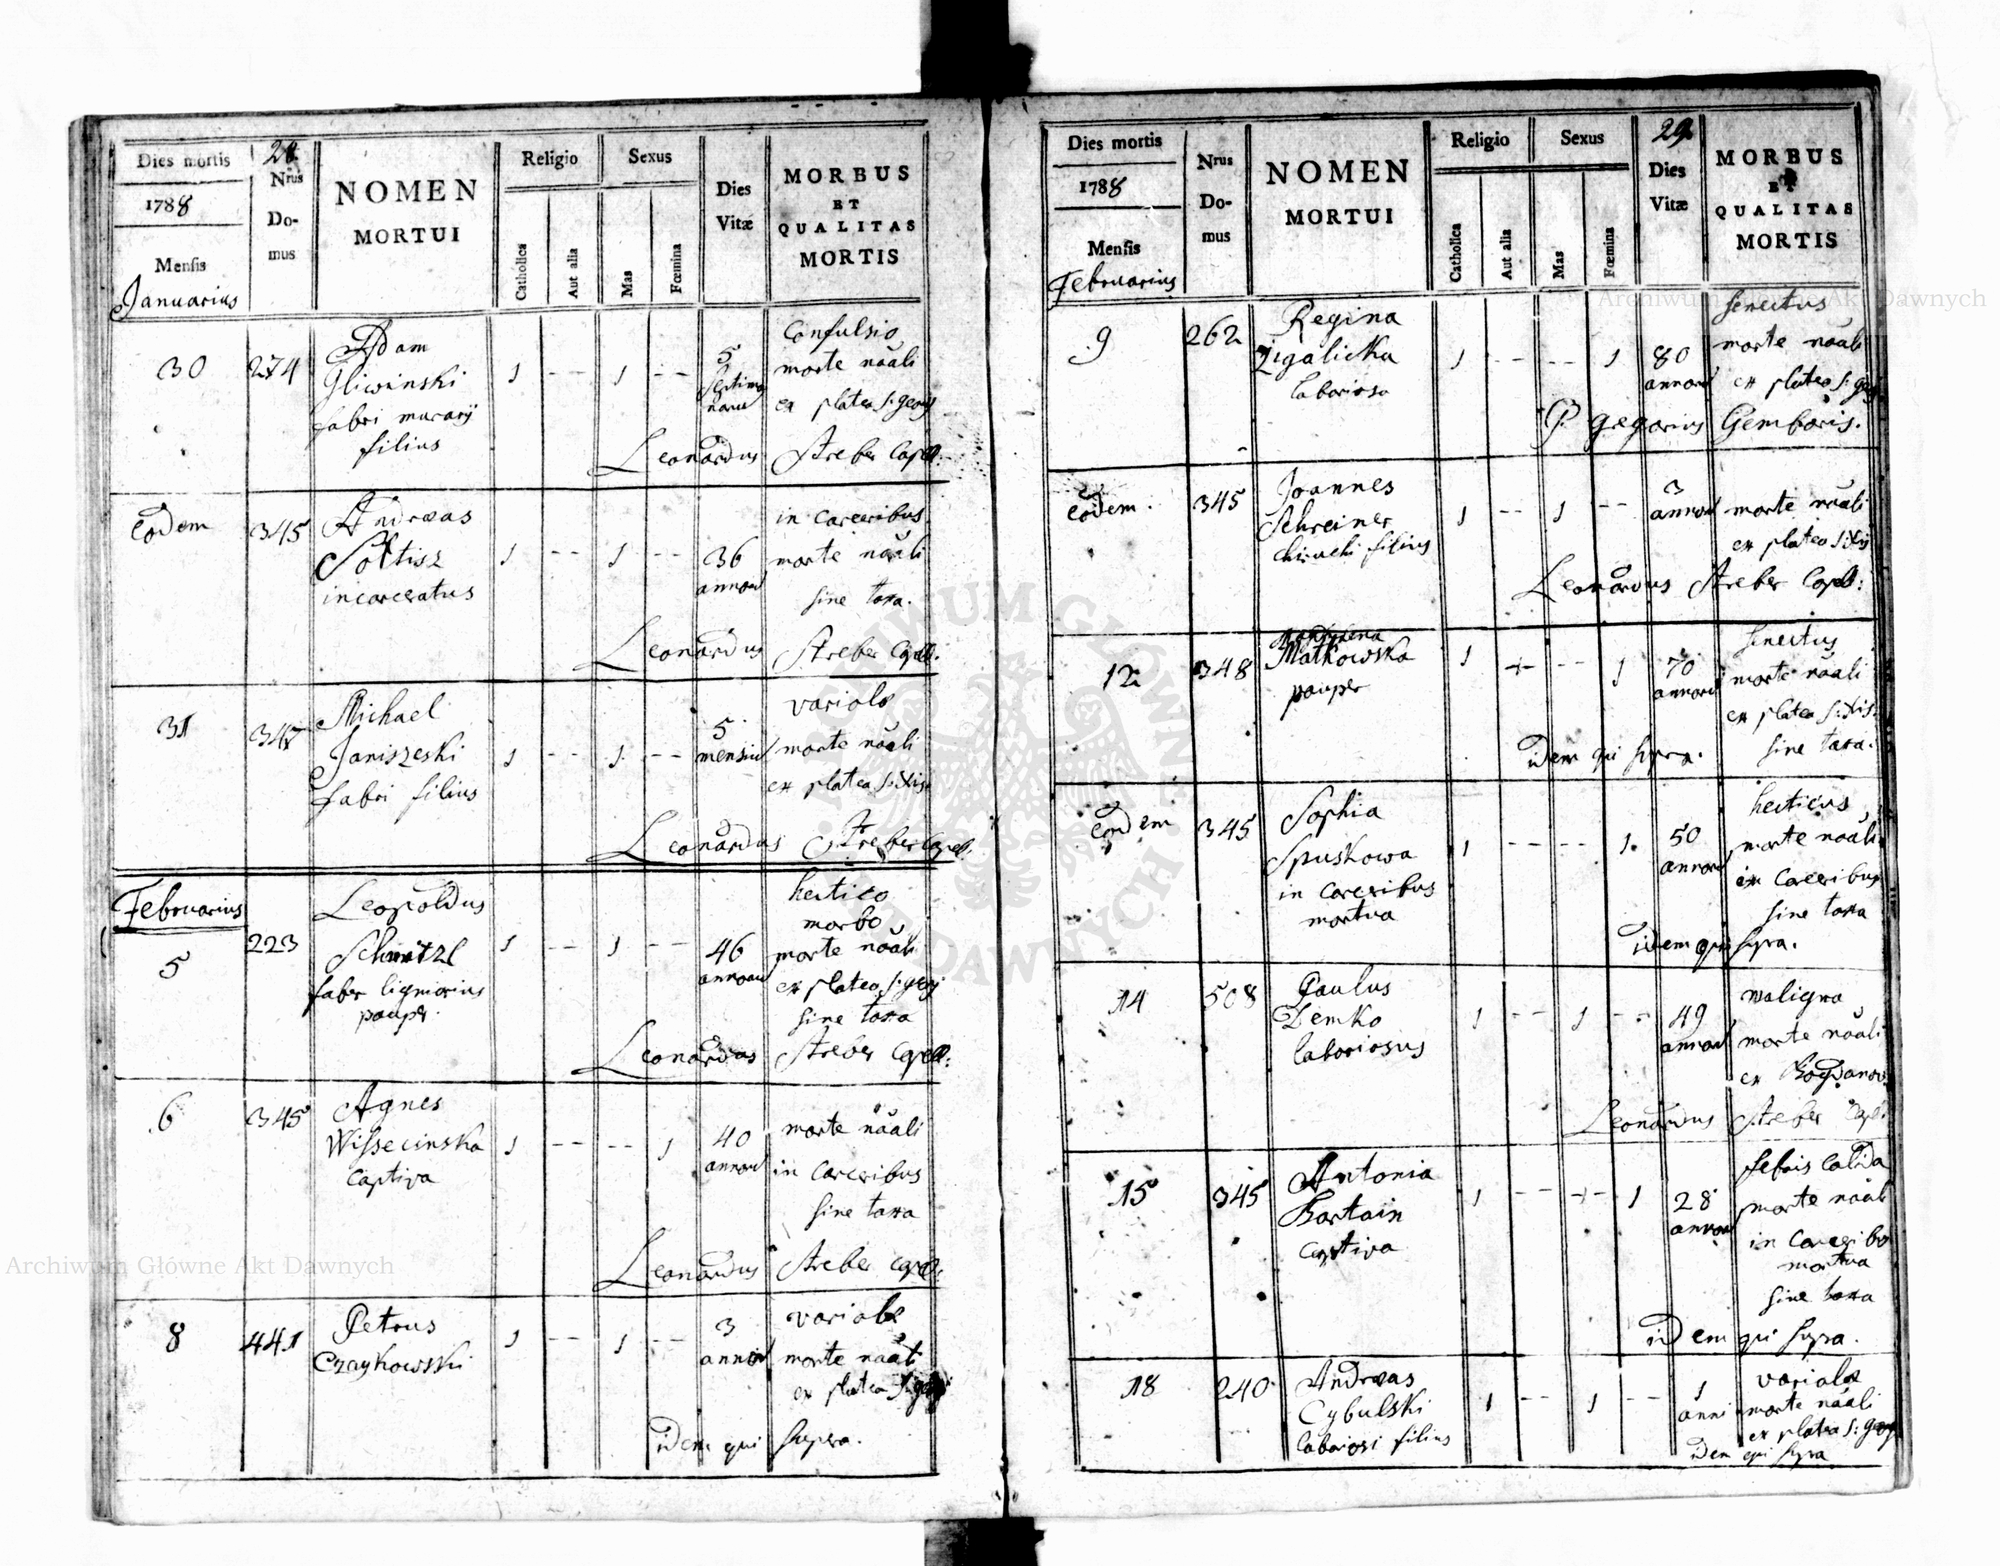 28.
Dies mortis
1788
Mensis
Januarius
Nrus
Do-
mus
NOMEN
MORTUI
Religio
Catholica
Aut alia
Sexus
Mas
Fœmina
Dies
Vitæ
MORBUS
ET
QUALITAS
MORTIS
30 274 Adam 1 -- 1 -- 5 Confulsio
Gliwinski morte nãali
fabri murarij ex platea S: georg
filius
Leonardus Streber Capell:
Eodem 345 Andreas 1 -- 1 -- 36 in carceribus
Soltisz annoru morte nãali
incarceratus sine taxa.
Leonardus Streber Capell.
31 347 Michael 1 -- 1 -- 5 variolæ
Janiszeski mensiu morte nãali
fabri filius ex platea S: Xis
Leonardus Streber Capell.
Februarius
5 223 Leopoldus 1 -- 1 -- 46 hectico
morbo
Schmitzl annoru morte nãali
faber lignarius ex platea S: georg
pauper. sine taxa
Leonardus Streber Capell:
6 345 Agnes 1 -- -- 1 40 morte nãali
Wissecinska annoru in carceribus
Captiva sine taxa
Leonardus Streber Capell:
8 441 Petrus 1 -- 1 -- 3 variolæ
Czaykowski annoru morte nãali
ex platea S: georg
idem qui supra.
29.
Dies mortis
1788
Mensis
Februarius
Nrus
Do-
mus
NOMEN
MORTUI
Religio
Catholica
Aut alia
Sexus
Mas
Fœmina
Dies
Vitæ
MORBUS
ET
QUALITAS
MORTIS
9 262 Regina 1 -- -- 1 80 senectus
Zigalicka annoru morte nãali
laboriosa ex platea S: georg
P. Gregorius Gemboris.
Eodem. 345 Joannes 1 -- 1 -- 3
Schreiner annoru morte nãali
filius ex platea S: Xis
Leonardus Streber Capell:
12 348 Matkowska 1 -- 1 70 senectus
pauper annoru morte nãali
ex platea S: Xis
sine taxa.
idem qui supra.
Eodem 345 Sophia 1 -- -- 1. 50 hecticus
Spuskowa annoru morte nãali
in carceribus in carceribus
mortua sine taxa
idem qui supra.
14 508 Paulus 1 -- 1 -- 49 maligna
Demko annoru morte nãali
laboriosus ex Bogdanow
Leonardus Streber Capell
15 345 Antonia 1 -- -- 1 28 febris calida
Bartain annoru morte nãali
captiva in carceribo
mortua
sine taxa
idem qui supra.
18 240 Andreas 1 -- 1 -- 1 variolæ
Cybulski anni morte nãali
laboriosi filius ex platea S: georg
idem qui supra
Archiwum Główne Akt Dawnych
Archiwum Główne Akt Dawnych
ARCHIWUM GŁÓWNE AKT DAWNYCH